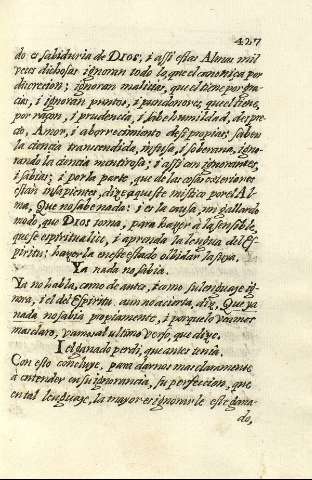 427
do es sabiduria de Dios; i assi estas Almas mil
veces dichosas ignoran todo lo, que el canoniça por
discrecion; ignoran malicias, que el tiene por gra-
cias, i ignoran puntos, i pundonores, que el tiene,
por raçon, i prudencia, i sabe humildad, despre-
cio, Amor, i aborrecimiento de si propias: saben
la ciencia trancendida, infusa, i soberana, igno-
rando la ciencia mentirosa; i assi son ignorantes,
i sabias; i por la parte, que de las cosas exteriores
estan insapientes, dize aqueste mistico por el Al-
ma, Que no sabe nada: i es la causa, mi gallardo
modo, que Dios toma, para hazer à lo sensible,
que se espiritualice, i aprenda la lengua del Es-
piritu; hazerla en este estado olbidar la suya.
Ya nada no sabia.
Ya no habla, como de antes; i como su lenguaje ig-
nora, i el del Espiritu, aun no acierta, dize, Que ya
nada no sabia propiamente, i porque lo veamos
mas claro, vamos al ultimo verso, que dize,
I el ganado perdi, que antes tenia.
Con esto concluye, para darnos mas claramente
à entender en su ignorancia, su perfeccion, que
en tal lenguaje, la mayor es ignorarle este gana-
do,